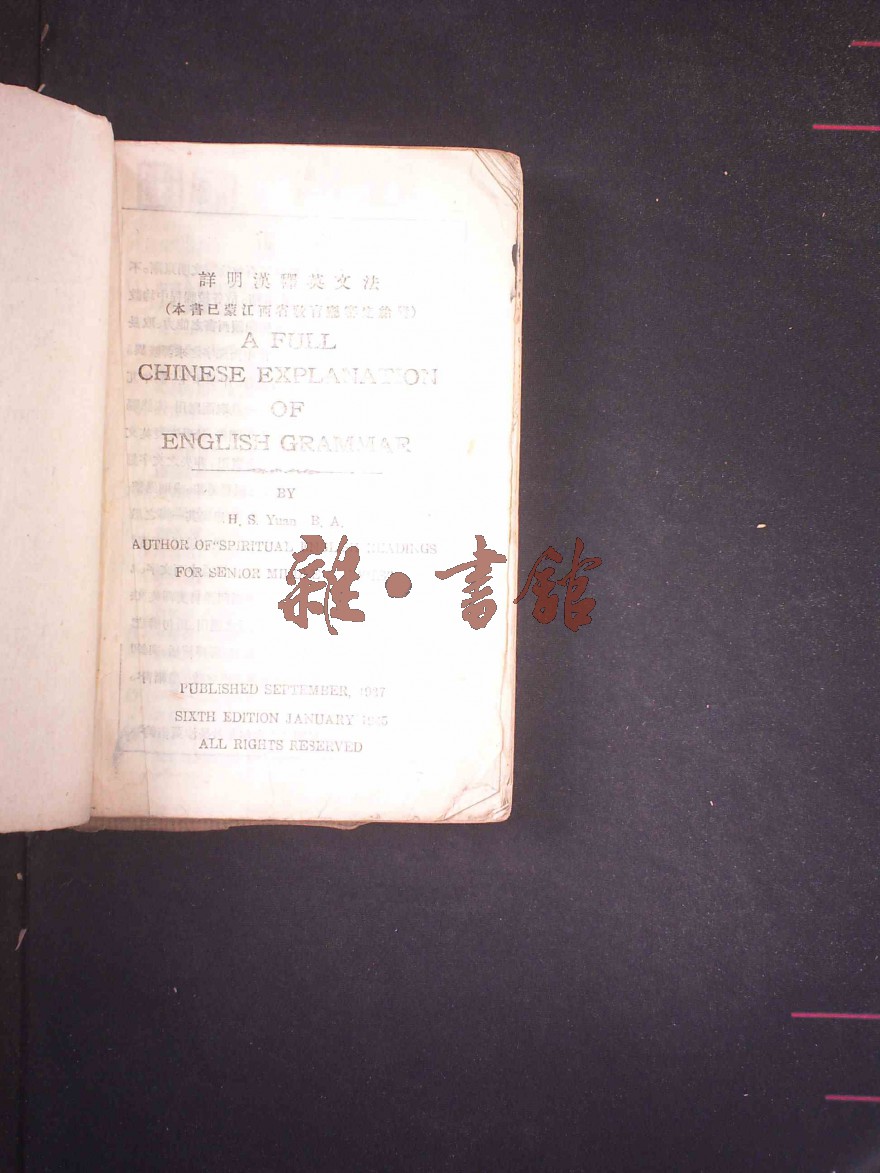 詳明漢釋英文法
(本書已蒙江西省教育廳審定
A FULL
CHINESE EXPLANATION
OF
ENGLISH GRAMMAR
BY
H. S. Yuan B. A.
AUTHOR OF "SPIRITUAL READINGS
FOR SENIOR
雜·書館
PUBLISHED SEPTEMBER,
SIXTH EDITION JANUARY
ALL RIGHTS RESERVED